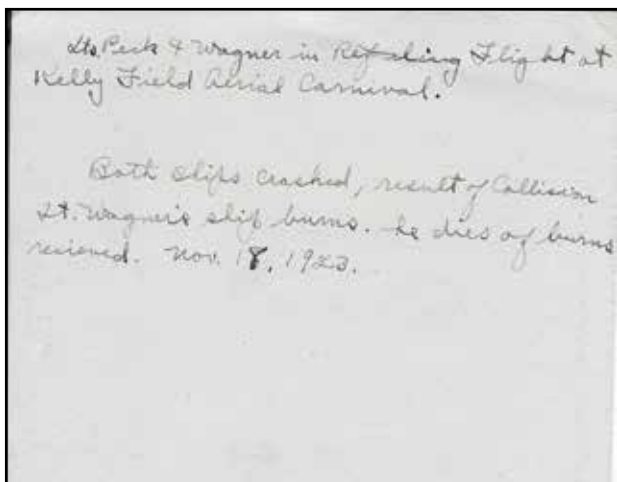 Lts. Peck & Wagner in Refueling Flight at
Kelly Field Aerial Carnival.
Both ships crashed, result of Collision
Lt. Wagner's ship burns. he dies of burns
recieved. Nov. 18, 1923.